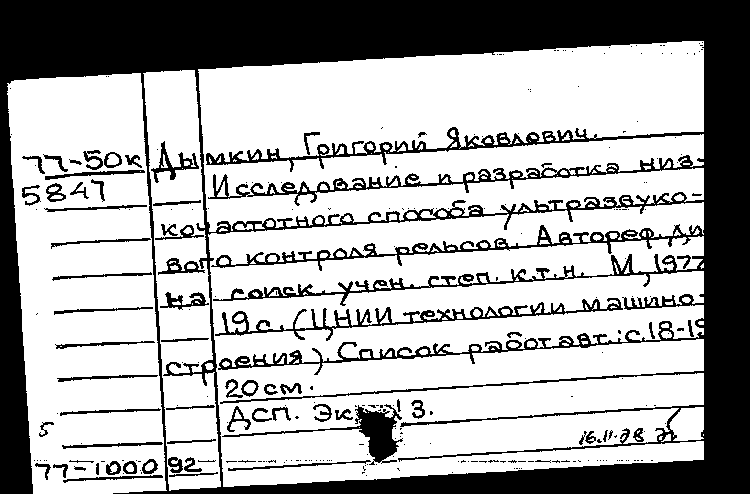 77-50к Дымкин, Григорий Яковлевич.
5847 Исследование и разработка низ-
кочастотного способа ультразвуко-
вого контроля рельсов. Автореф. ди
на соиск. учен. степ. к.т.н. М, 1977
19 с. (ЦНИИ технологии машино-
строения). Список работ авт.: с. 18-19
20 см.
ДСП. Эк 3.
5
16.11.78
77-1000 92